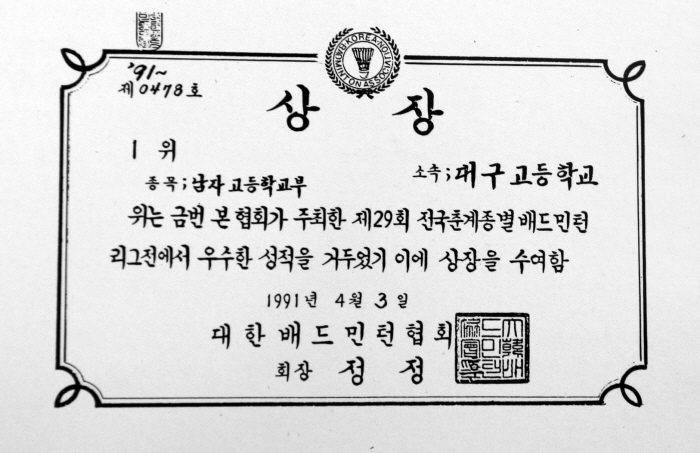 '91~
제0478호
KOREA BADMINTON ASSOCIATION
상 장
1 위
종목; 남자 고등학교부
소속; 대구 고등학교
위는 금번 본 협회가 주최한 제29회 전국춘계종별 배드민턴
리그전에서 우수한 성적을 거두었기 이에 상장을 수여함
1991년 4월 3일
대한배드민턴협회
회장 정 정